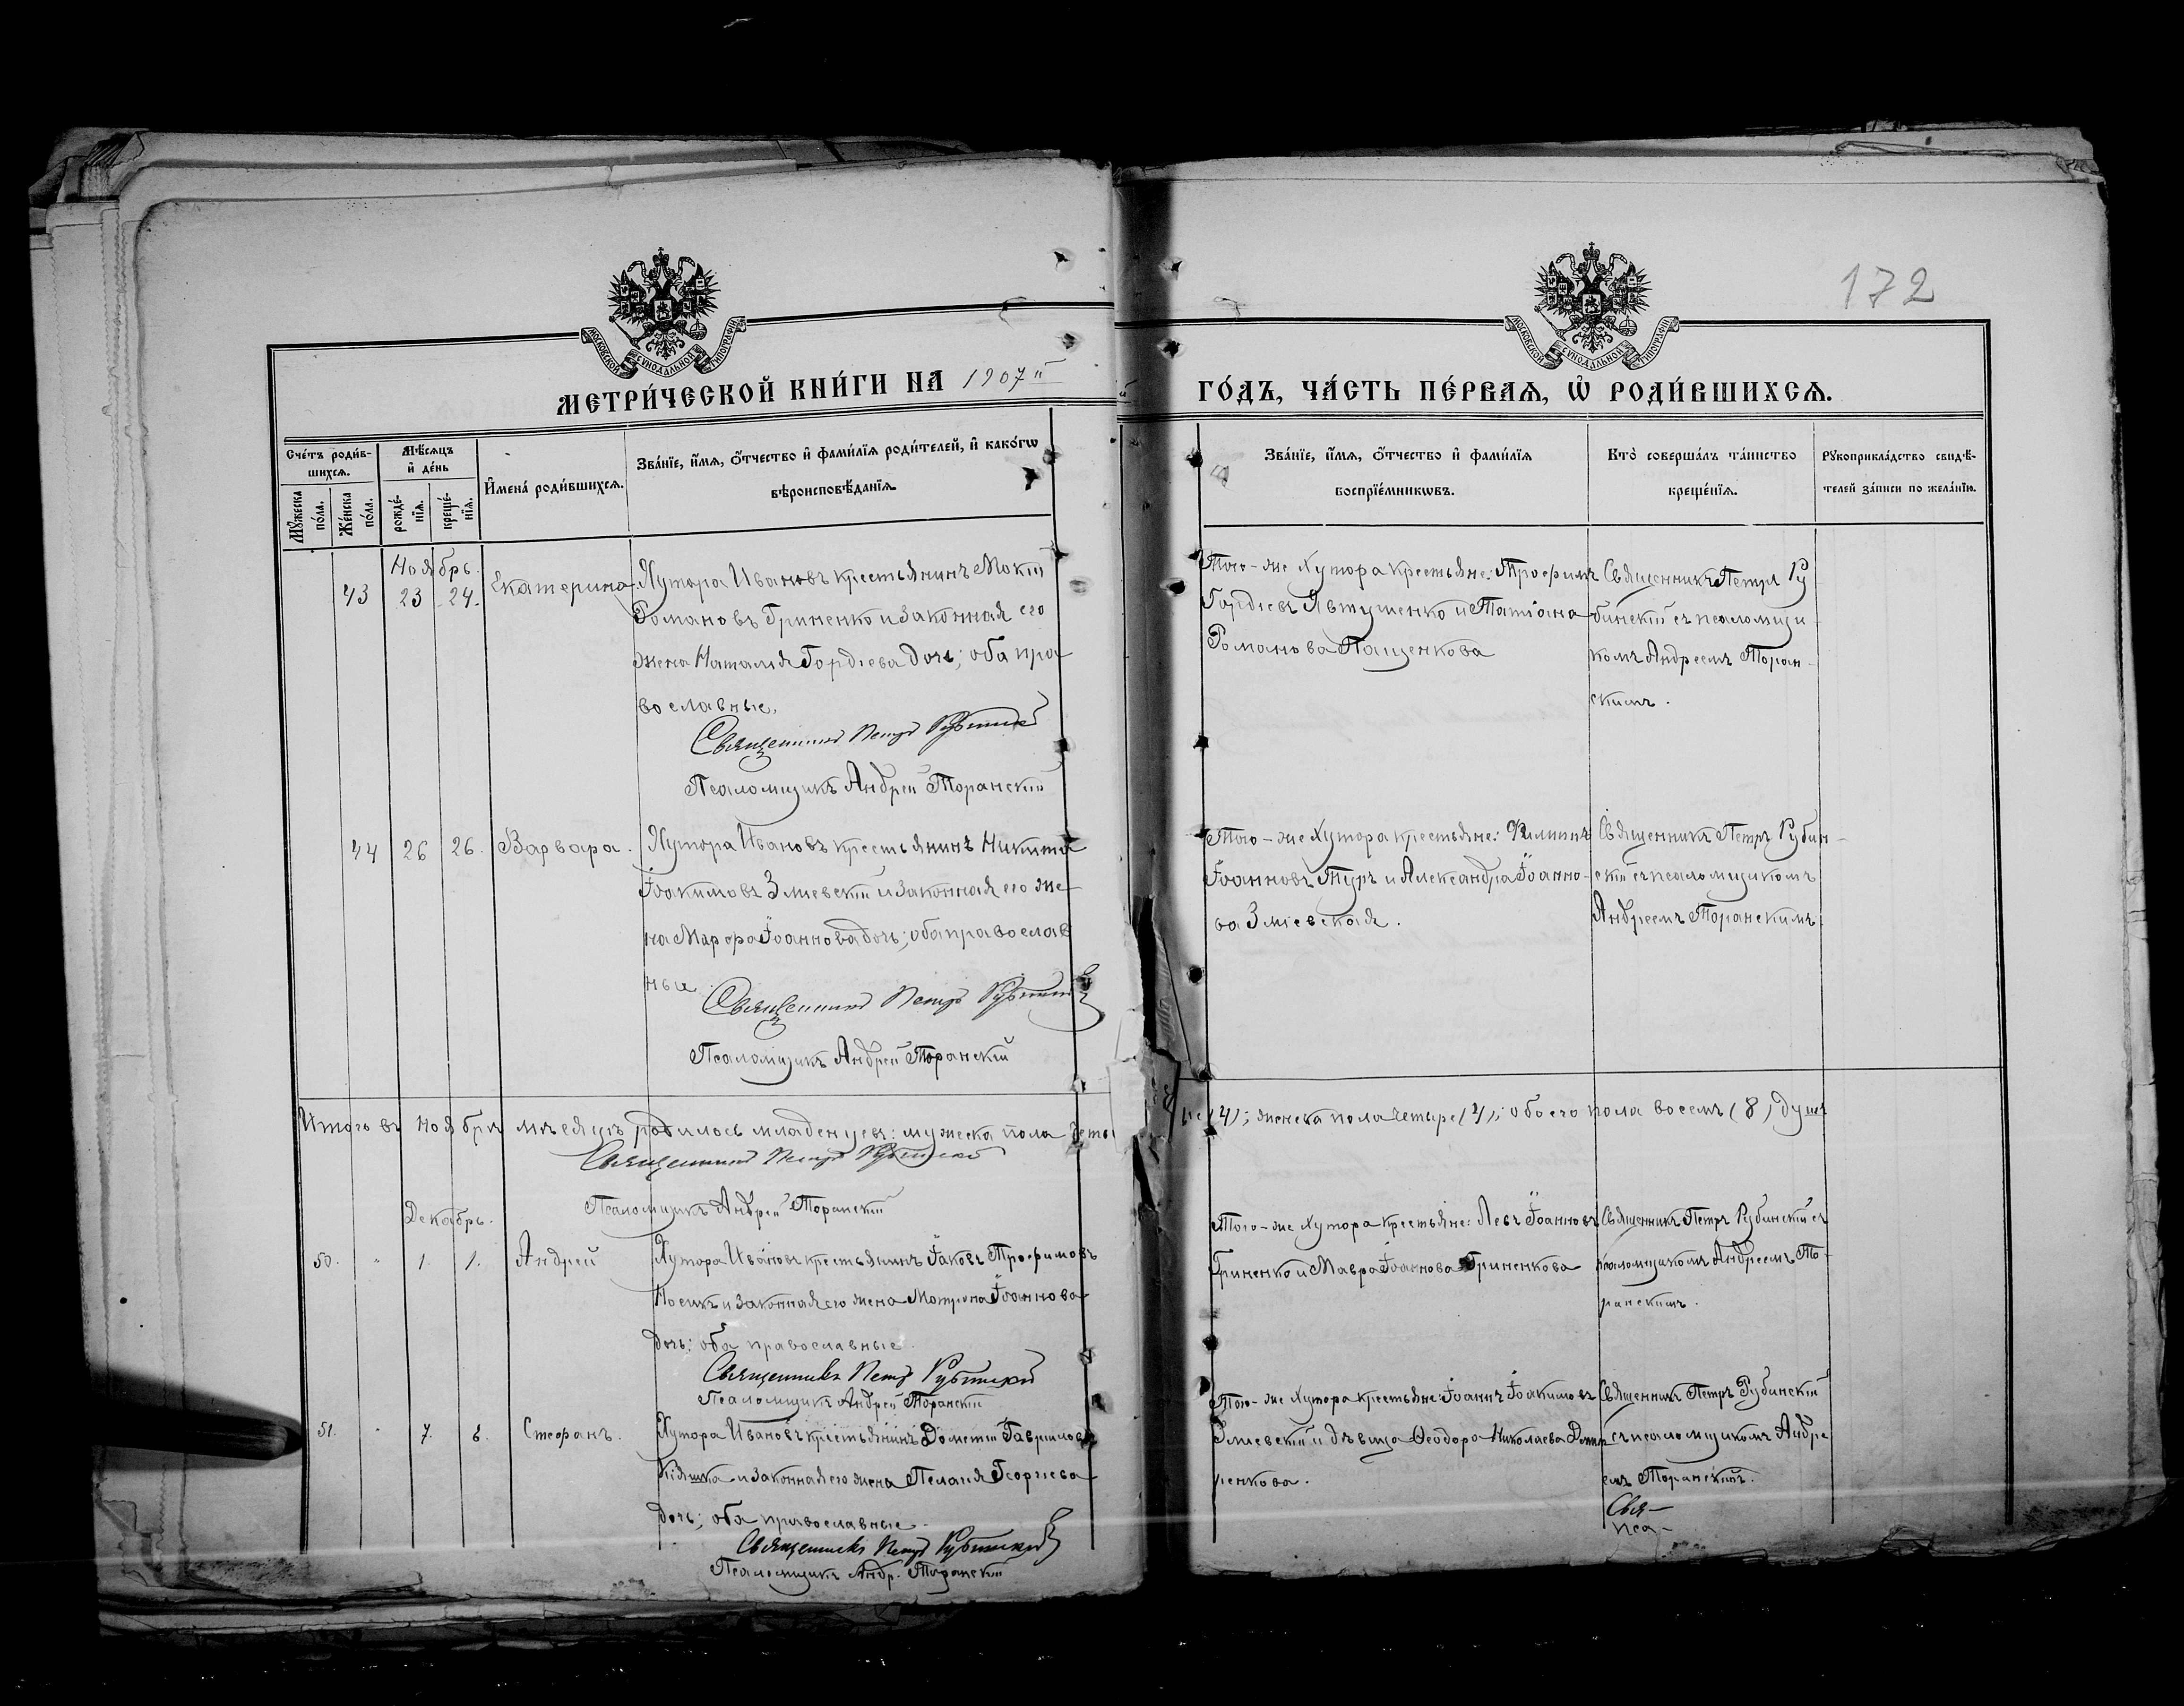 172
МОСКОВСКОЙ СѴНОДАЛЬНОЙ ТИПОГРАФІИ
МОСКОВСКОЙ СѴНОДАЛЬНОЙ ТИПОГРАФІИ
МЕТРИ́ЧЕСКОЙ КНИ́ГИ НА 1907й
ГО́ДЪ, ЧА́СТЬ ПЕ́РВАѦ, Ѽ РОДИ́ВШИХСѦ.
Сче́тъ роди́в-
шихсѧ.
Мꙋ́жеска по́ла.
Же́нска по́ла.
Мѣ́сѧцъ
и҆ де́нь
рожде́-
нїѧ.
креще́-
нїѧ.
И҆мена́ роди́вшихсѧ.
Зва́нїе, и҆́мѧ, ѻ҆́тчество и҆ фами́лїѧ роди́телей, и҆ како́гѡ
вѣроисповѣ́данїѧ.
Зва́нїе, и҆́мѧ, ѻ҆́тчество и҆ фами́лїѧ
воспрїе́мникѡвъ.
Кто̀ соверша́лъ та́инство
креще́нїѧ.
Рꙋкоприкла́дство свидѣ́-
телей за́писи по жела́нїю.
Ноябрь.
43 23 24. Екатерина
Хутора Ивановъ крестьянинъ Мокій
Романовъ Гриненко и законная его
жена Наталія Гордіева дочь; оба пра-
вославные.
Священникъ Петръ Рубинскій
Псаломщикъ Андрей Торанскій
Того-же Хутора крестьяне: Трофимъ
Гордіевъ Явтушенко и Татіана
Романова Пащенкова
Священникъ Петръ Ру-
бинскій съ псаломщи-
комъ Андреемъ Торан-
скимъ.
44 26 26. Варвара.
Хутора Ивановъ крестьянинъ Никита
Іоакимовъ Зміевскій и законная его же-
на Марфа Іоаннова дочь; оба православ
ные.
Священникъ Петръ Рубинскій
Псаломщикъ Андрей Торанскій
Того-же Хутора крестьяне: Филиппъ
Іоанновъ Туръ и Александра Іоанно-
ва Зміевская.
Священникъ Петръ Рубин-
скій съ псаломщикомъ
Андреемъ Торанскимъ.
Итого въ Ноябрѣ мѣсяцѣ родилось младенцевъ: мужеска пола четы
ре (4); женска пола четыре (4); обоего пола восемь (8) душъ
Священникъ Петръ Рубинскій
Псаломщикъ Андрей Торанскій
Декабрь.
50. " 1. 1. Андрей
Хутора Ивановъ крестьянинъ Іаковъ Трофимовъ
Носикъ и законная его жена Мотрона Іоаннова
дочь; оба православные.
Священникъ Петръ Рубинскій
Псаломщикъ Андрей Торанскій
Того-же Хутора крестьяне: Левъ Іоанновъ
Гриненко и Мавра Іоаннова Гриненкова
Священникъ Петръ Рубинскій съ
псаломщикомъ Андреемъ То-
ранскимъ.
51. " 7. 8. Стефанъ.
Хутора Ивановъ крестьянинъ Дометій Гавриловъ
Кіяшка и законная его жена Пелагія Георгіева
дочь; оба православные.
Священникъ Петръ Рубинскій
Псаломщикъ Андр. Торанскій
Того-же Хутора крестьяне: Іоаннъ Іоакимовъ
Зміевскій и дѣвица Ѳеодора Николаева
ченкова.
Священникъ Петръ Рубинскій
съ псаломщикомъ Андре
емъ Торанскимъ.
Свя-
Пса-